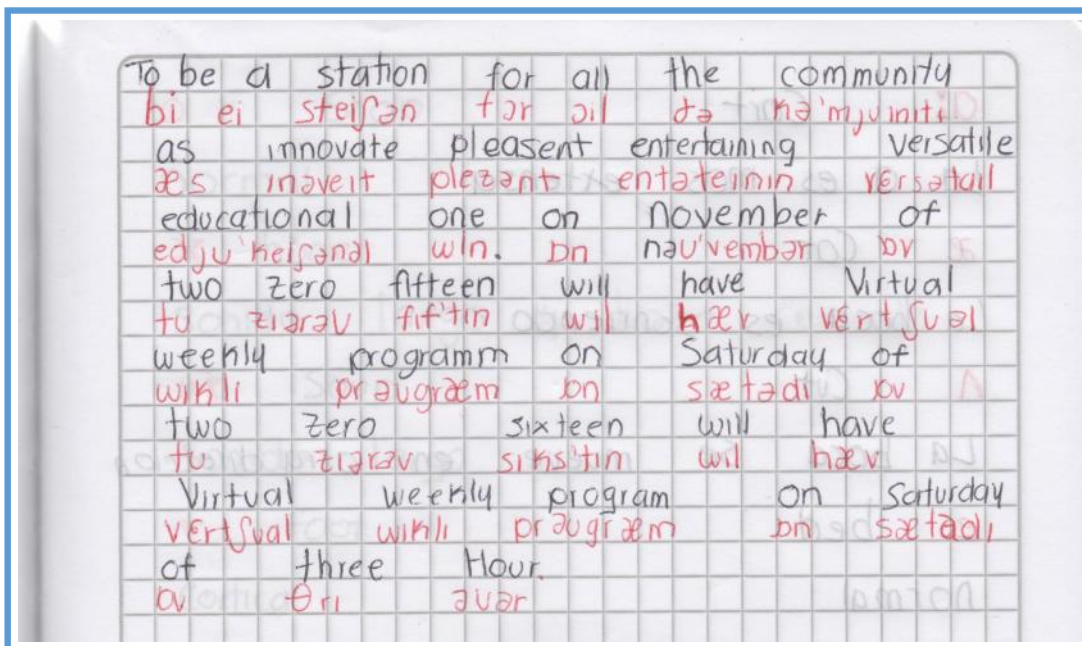 To be a station for all the community
bi ei steiʃən fər ɔil ðə kə'mjuiniti
as innovate pleasent entertaining versatile
æs inəveit plezənt entəteinin vɛrsətail
educational one on november of
edju'keiʃənəl wɪn. ɒn nəu'vembər ɒv
two zero fifteen will have Virtual
tu ziərəv fif'tin will hær vɛrtʃuəl
weekly programm on Saturday of
wikli prəugræm ɒn sætədi ɒv
two zero sixteen will have
tu ziərəv siks'tin wil hæv
Virtual weekly program on Saturday
vɛrtʃual wikli prəugræm ɒn sætədi
of three Hour.
ɒv θri əuər